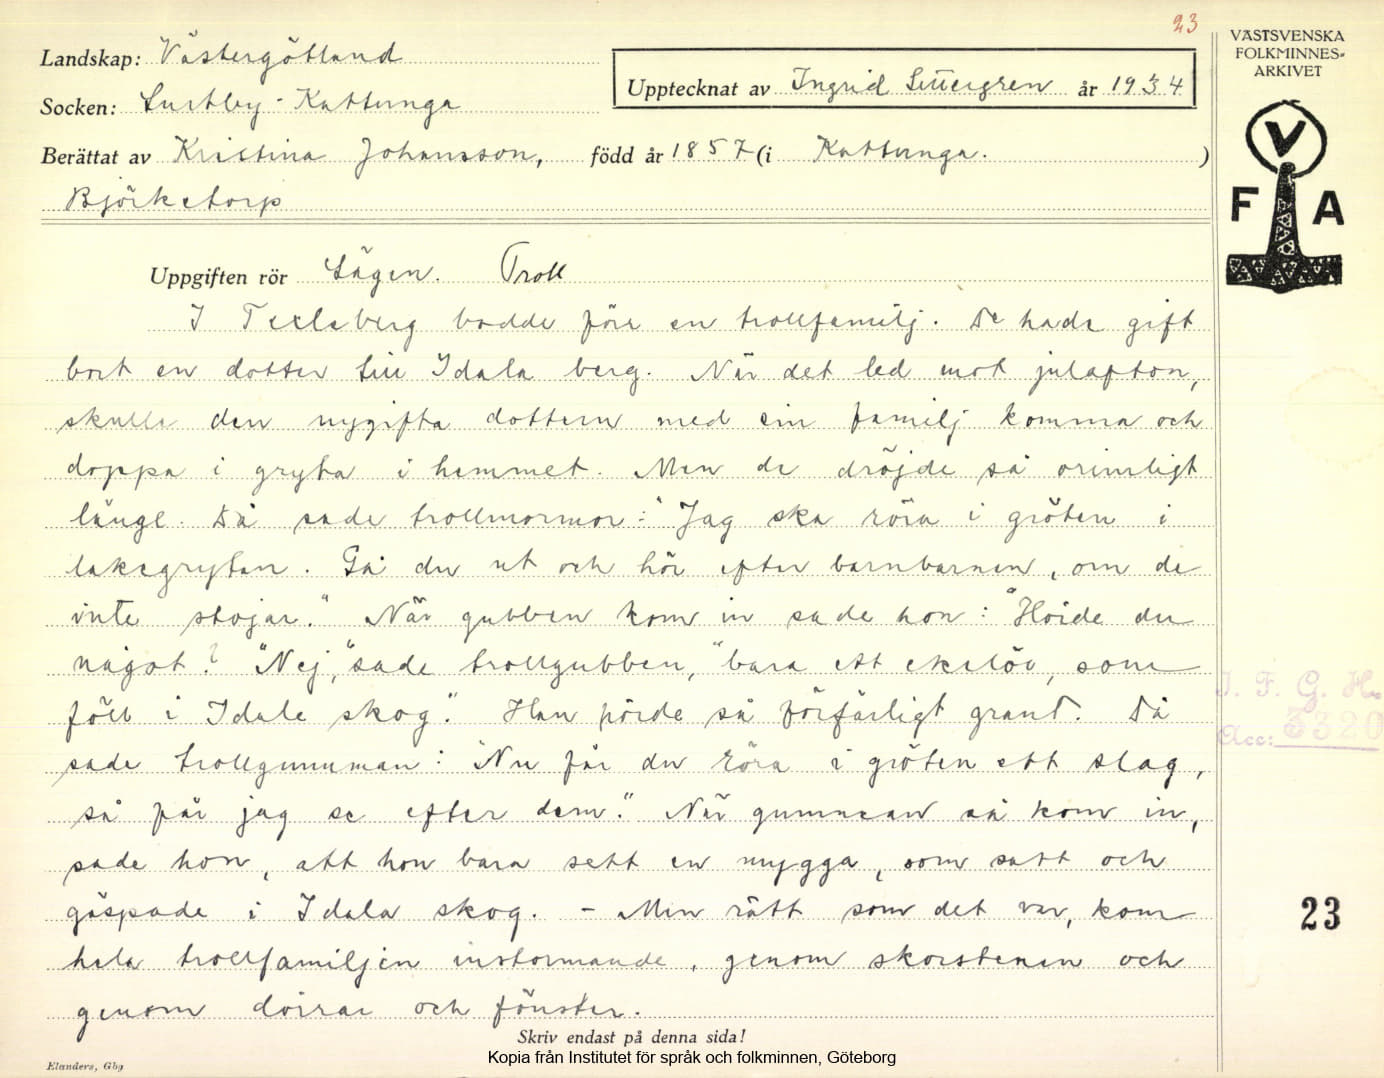 23
Landskap: Västergötland
Socken: Surtby-Kattunga
Upptecknat av Ingrid Settergren år 1934
VÄSTSVENSKA
FOLKMINNES-
ARKIVET
Berättat av Kristina Johansson, född år 1857 (i Kattunga. )
Björketorp
V
F A
Uppgiften rör Sägen. Troll
I berg bodde förr en trollfamilj. De hade gift
bort en dotter till Idala berg. När det led mot julafton,
skulle den nygifta dottern med sin familj komma och
doppa i gryta i hemmet. Men de dröjde så orimligt
länge. Då sade trollmormor: "Jag ska röra i gröten i
lakegrytan. Gå du ut och hör efter barnbarnen, om de
inte stojar." När gubben kom in sade hon: "Hörde du
något? "Nej," sade trollgubben, "bara ett ekelöv, som
föll i Idala skog." Han hörde så förfärligt grant. Då
sade trollgumman: "Nu får du röra i gröten ett slag,
så får jag se efter dem." När gumman så kom in,
sade hon, att hon bara sett en mygga, som satt och
gäspade i Idala skog. - Men rätt som det var, kom
hela trollfamiljen instormande, genom skorstenen och
genom dörrar och fönster.
I. F. G. H.
Acc: 3320
23
Skriv endast på denna sida!
Kopia från Institutet för språk och folkminnen, Göteborg
Elanders, Gbg